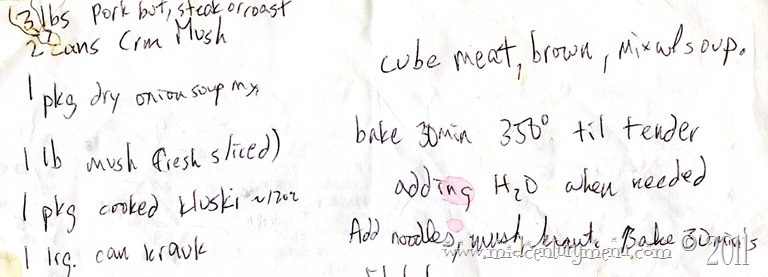 (3) lbs Pork but, steak or roast
2 cans Crm Mush
1 pkg dry onion soup mx
1 lb mush (fresh sliced)
1 pkg cooked kluski ~12oz
1 lrg. can kraut
cube meat, brown, mix w/ soup.
bake 30min 350° til tender
adding H2O when needed
Add noodles, mush, kraut. Bake 30 min's
www.midcenturymenu.com 2011